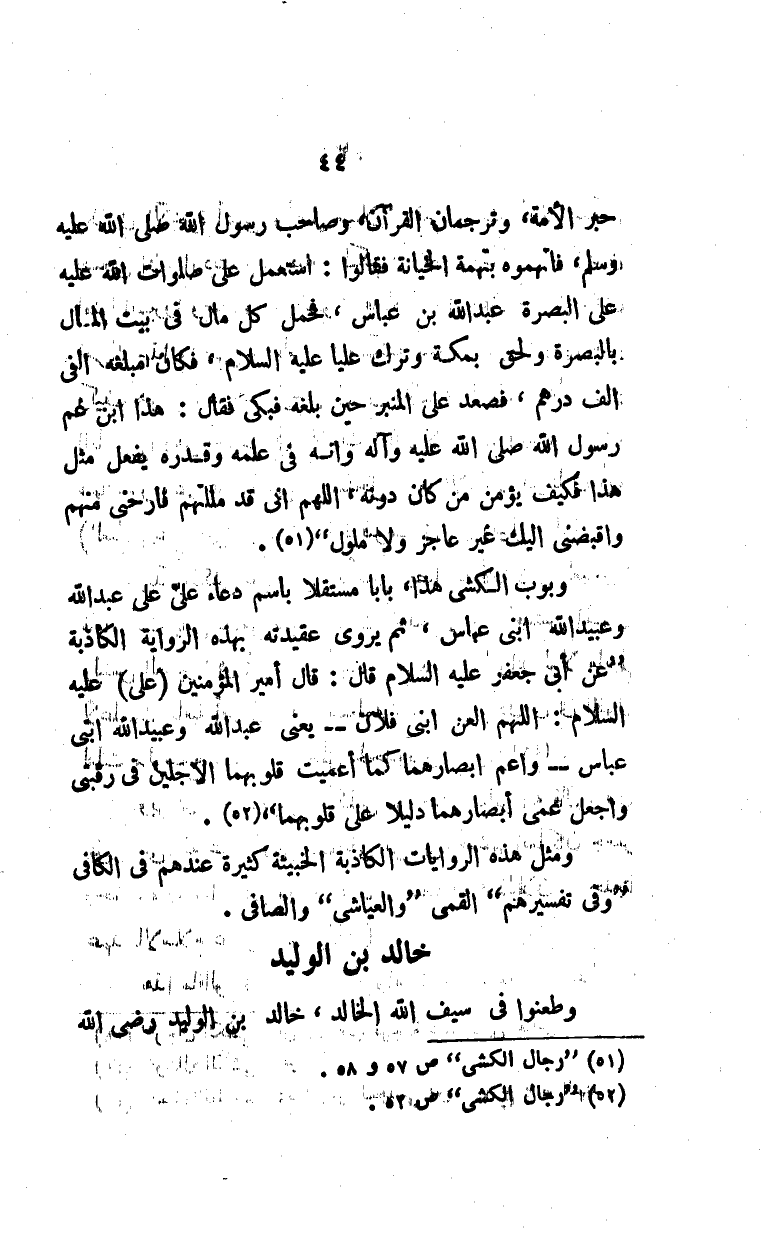 ٤٤
حبر الأمة، وترجمان القرآن، وصاحب رسول الله صلى الله عليه
وسلم، فاتهموه بتهمة الخيانة فقالوا : استعمل على صلوات الله عليه
على البصرة عبدالله بن عباس ، فحمل كل مال فى بيت المال
بالبصرة ولحق بمكة وترك عليا عليه السلام ، فكان مبلغه الفى
الف درهم ، فصعد على المنبر حين بلغه فبكى فقال : هذا ابن عم
رسول الله صلى الله عليه وآله وانه فى علمه وقدره يفعل مثل
هذا فكيف يؤمن من كان دونه، اللهم انى قد مللتهم فارحنى منهم
واقبضنى اليك غير عاجز ولا ملول“(٥١) .
وبوب الكشى هذا، بابا مستقلا باسم دعاء علىّ على عبدالله
وعبيدالله ابنى عباس ، ثم يروى عقيدته بهذه الرواية الكاذبة
”عن أبى جعفر عليه السلام قال : قال أمير المؤمنين (على) عليه
السلام : اللهم العن ابنى فلان ــ يعنى عبدالله وعبيدالله ابنى
عباس ــ واعم ابصارهما كما أعميت قلوبهما الأجلين فى رقبتى
واجعل عمى أبصارهما دليلا على قلوبهما“،(٥٢) .
ومثل هذه الروايات الكاذبة الخبيثة كثيرة عندهم فى الكافى
”وفى تفسيرهم“ القمى ”والعياشى“ والصافى .
خالد بن الوليد
وطعنوا فى سيف الله الخالد ، خالد بن الوليد رضى الله
(٥١) ”رجال الكشى“ ص ٥٧ و ٥٨ .
(٥٢) ”رجال الكشى“ ص ٥٢ .